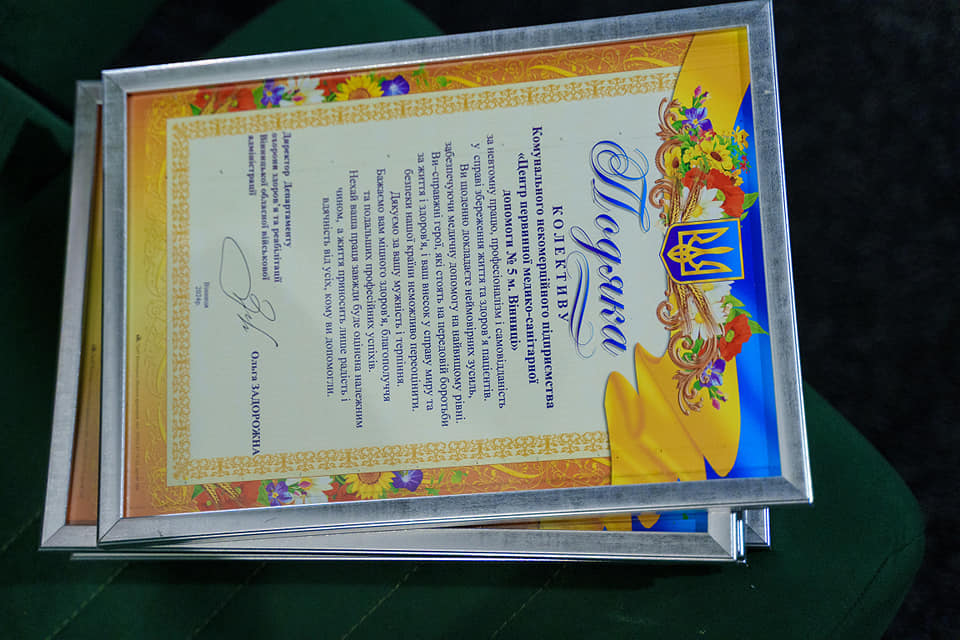 Подяка
КОЛЕКТИВУ
Комунального некомерційного підприємства
«Центр первинної медико-санітарної
допомоги № 5 м. Вінниці»
за невтомну працю, професіоналізм і самовідданість
у справі збереження життя та здоров'я пацієнтів.
Ви щоденно докладаєте неймовірних зусиль,
забезпечуючи медичну допомогу на найвищому рівні.
Ви-справжні герої, які стоять на передовій боротьби
за життя і здоров'я, і ваш внесок у справу миру та
безпеки нашої країни неможливо переоцінити.
Дякуємо за вашу мужність і терпіння.
Бажаємо вам міцного здоров'я, благополуччя
та подальших професійних успіхів.
Нехай ваша праця завжди буде оцінена належним
чином, а життя приносить лише радість і
вдячність від усіх, кому ви допомогли.
Директор Департаменту
охорони здоров'я та реабілітації
Вінницької обласної військової
адміністрації
Ольга ЗАДОРОЖНА
Вінниця
2024р.